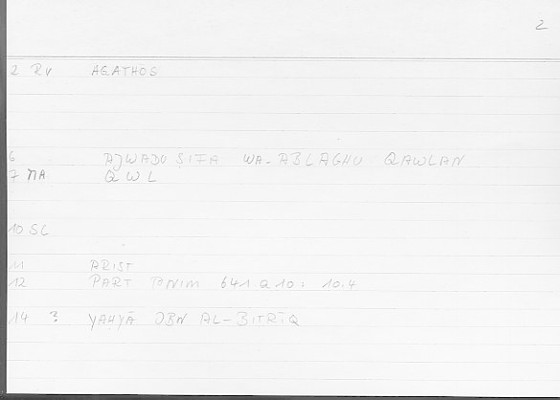 2
2 RV AGATHŌS
6 AJWADU ṢIFA WA-ABLAGHU QAWLAN
7 NA QWL
10 SL
11 ARIST
12 PART ANIM 641 a 10: 10.4
14 ? YAḤYĀ IBN AL-BIṬRĪQ